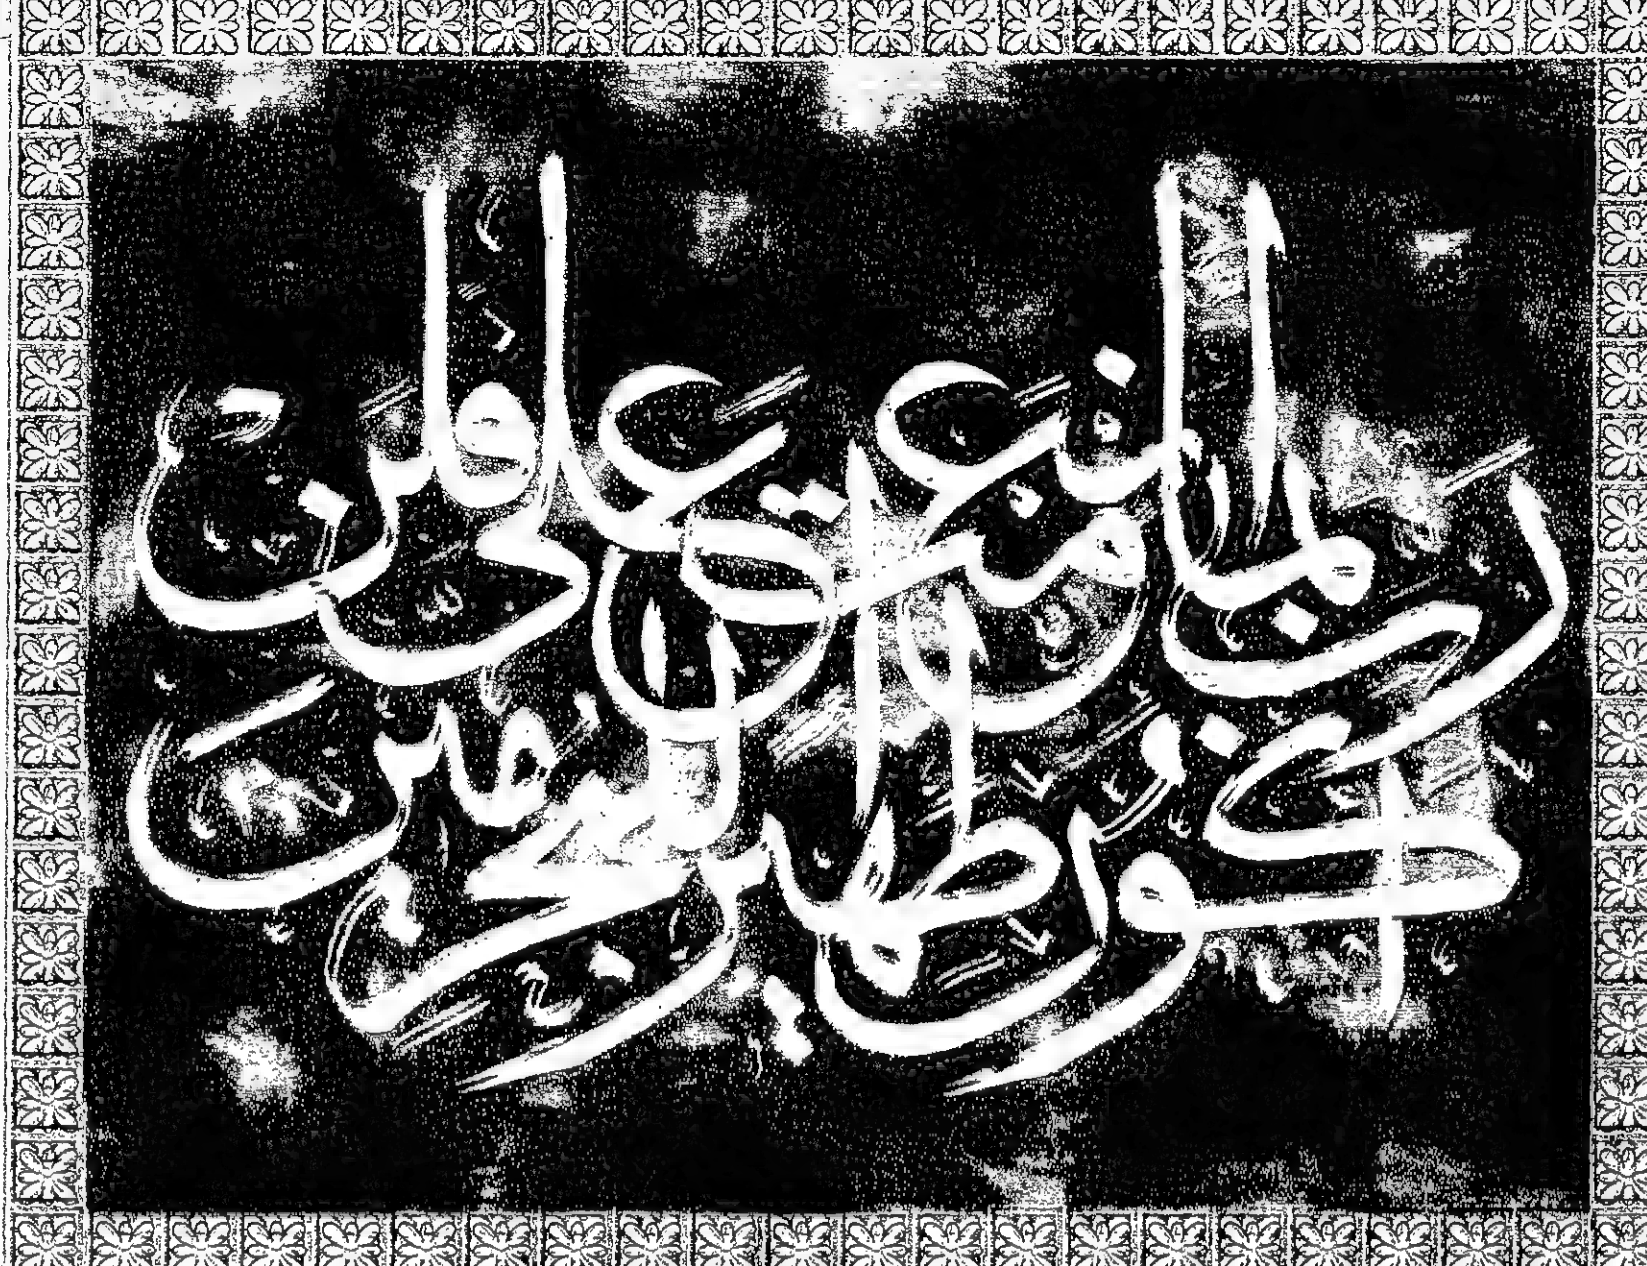 رَبِّ بِمَا أَنْعَمْتَ عَلَيَّ فَلَنْ
أَكُونَ ظَهِيرًا لِلْمُجْرِمِينَ